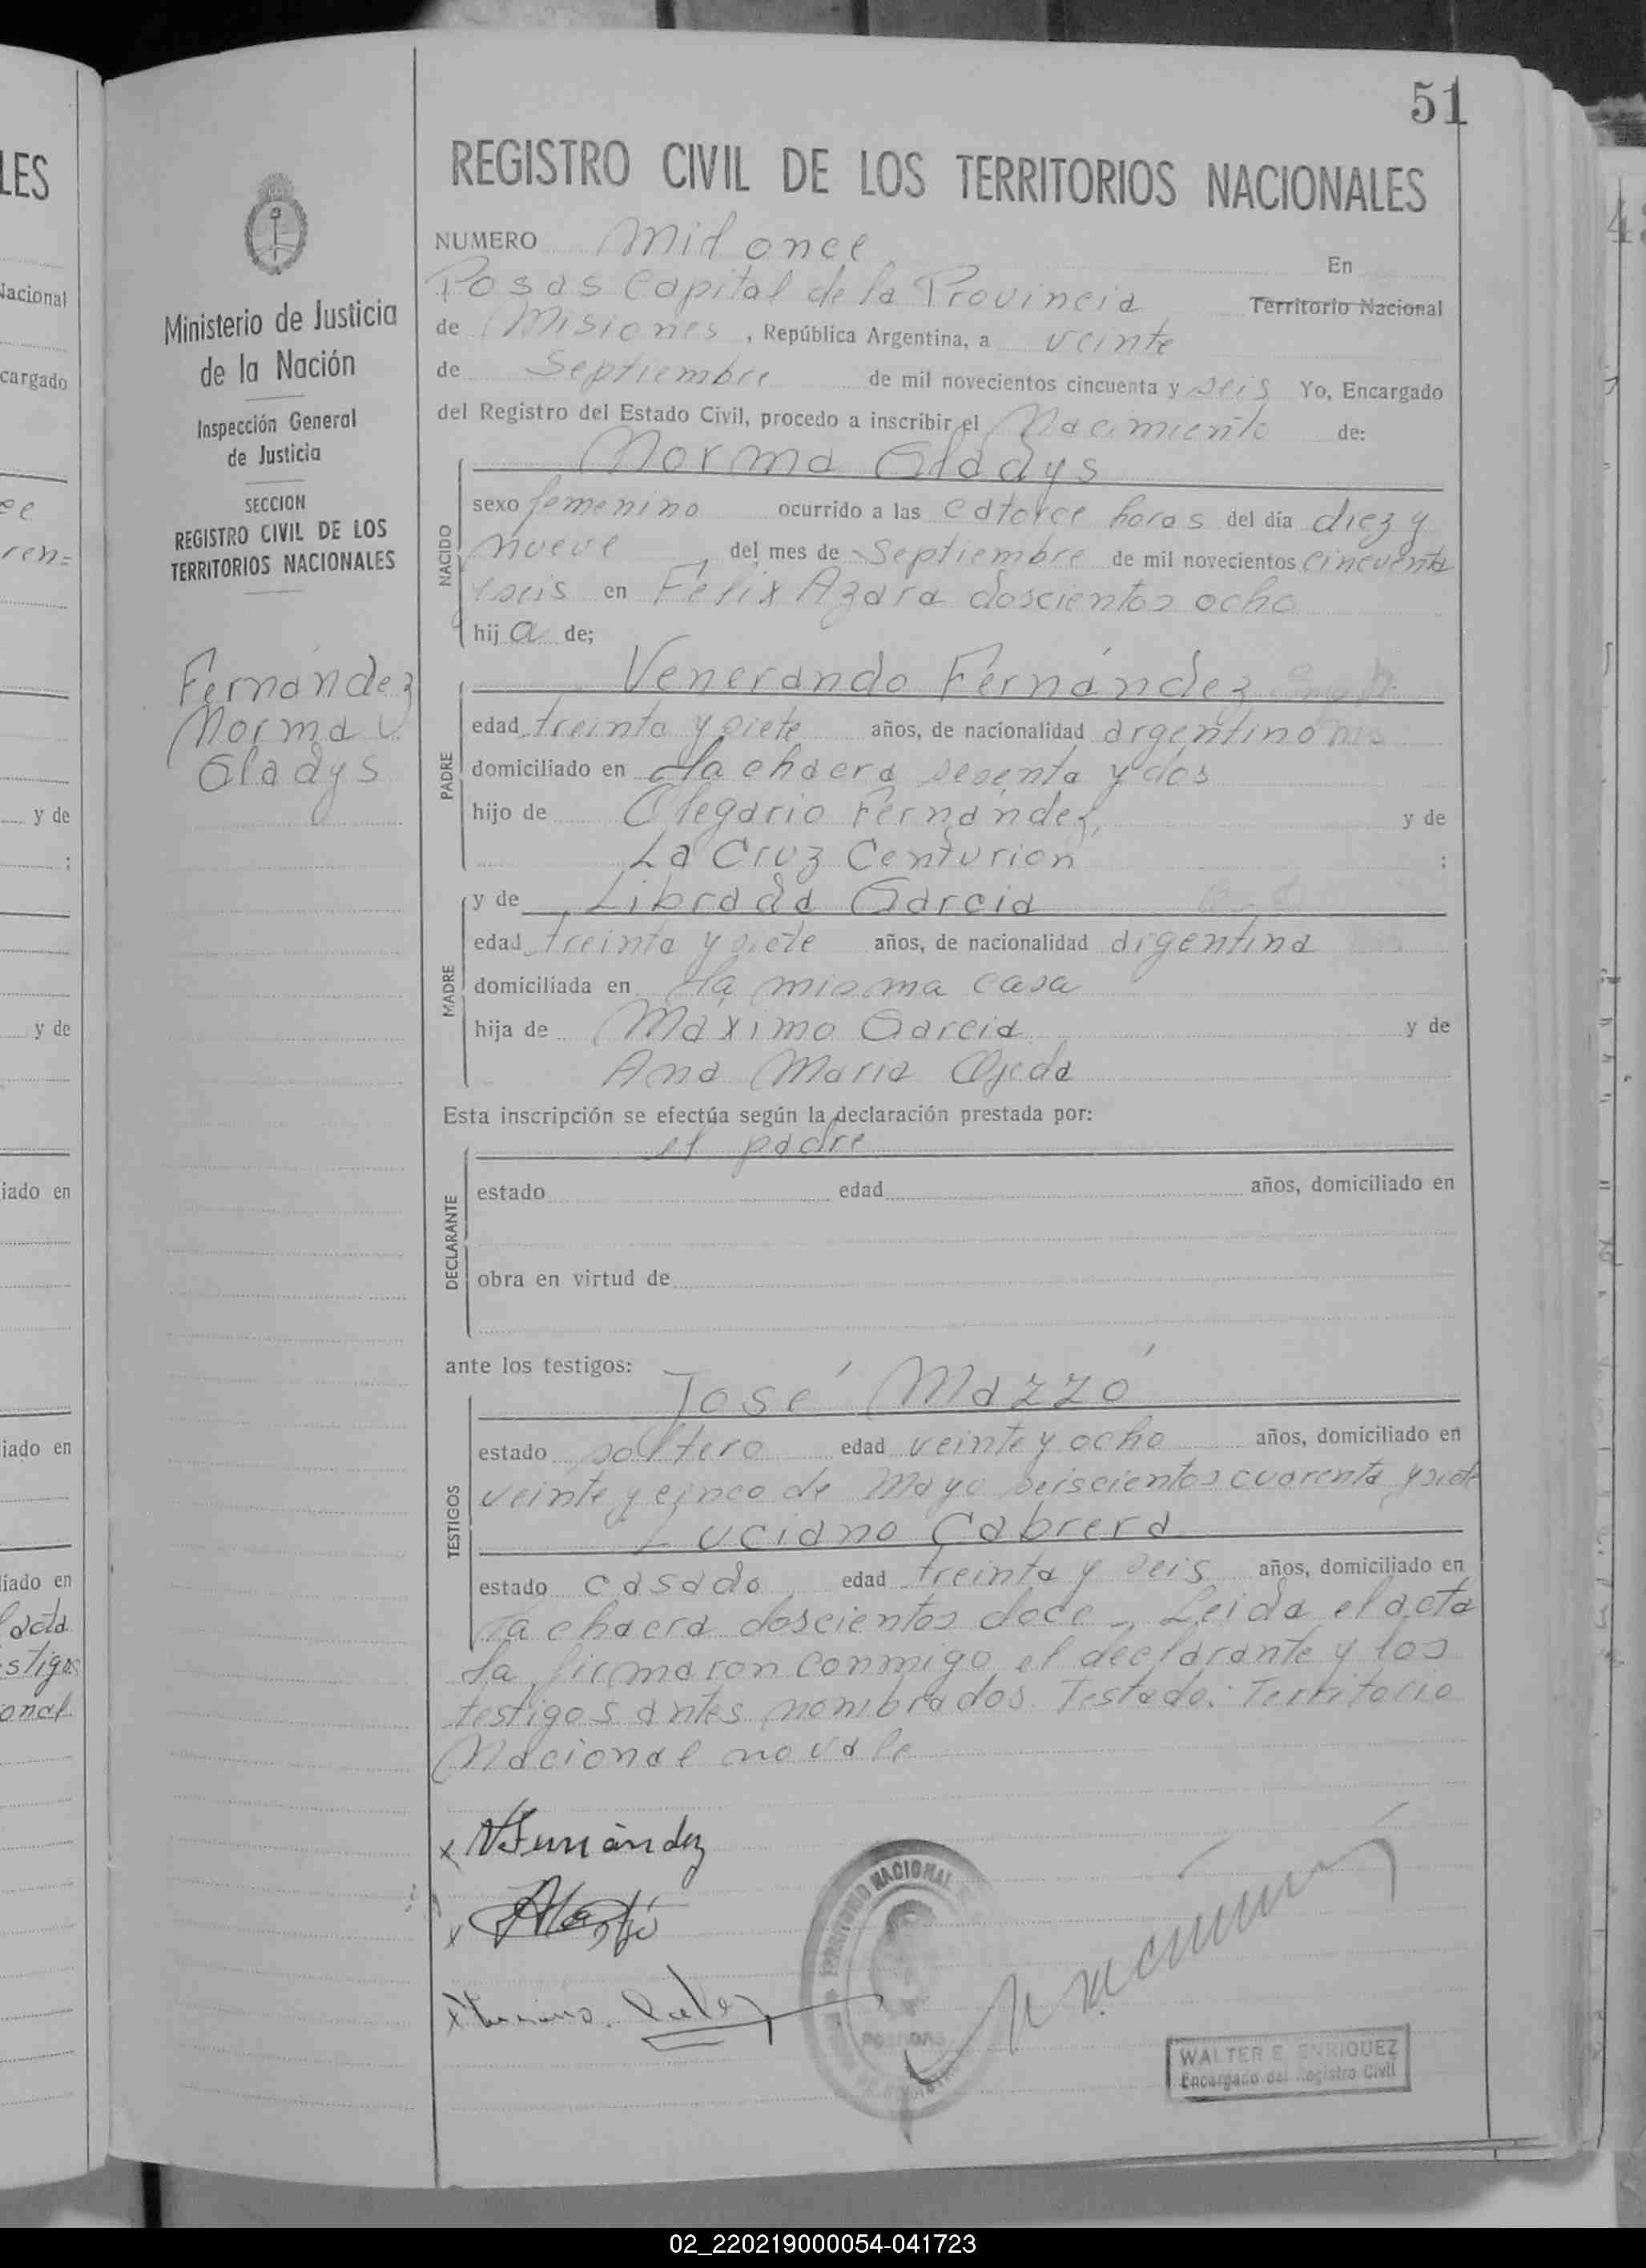 51
REGISTRO CIVIL DE LOS TERRITORIOS NACIONALES
NUMERO Mil once En
Posadas Capital de la Provincia Territorio Nacional
de Misiones, República Argentina, a veinte
de Septiembre de mil novecientos cincuenta y seis Yo, Encargado
del Registro del Estado Civil, procedo a inscribir el Nacimiento de:
Norma Gladys
NACIDO
sexo femenino ocurrido a las catorce horas del día diez y
nueve del mes de Septiembre de mil novecientos cincuenta
y seis en Felix Azara doscientos ocho
hij a de;
Venerando Fernández
PADRE
edad treinta y siete años, de nacionalidad argentino
domiciliado en la chacra sesenta y dos
hijo de Olegario Fernández, y de
La Cruz Centurion :
y de Librada Garcia
MADRE
edad treinta y siete años, de nacionalidad argentina
domiciliada en la misma casa
hija de Máximo Garcia y de
Ana Maria Ojeda
Esta inscripción se efectúa según la declaración prestada por:
el padre
DECLARANTE
estado edad años, domiciliado en
obra en virtud de
ante los testigos:
José Mazzó
TESTIGOS
estado soltero edad veinte y ocho años, domiciliado en
veinte y cinco de Mayo seiscientos cuarenta y siete
Luciano Cabrera
estado casado edad treinta y seis años, domiciliado en
la chacra doscientos doce - Leida el acta
la firmaron conmigo el declarante y los
testigos antes nombrados. Testado: Territorio
Nacional no vale
x VFernández
x
x
TERRITORIO NACIONAL
POSADAS
WALTER E. ENRIQUEZ
Encargado del Registro Civil
Ministerio de Justicia
de la Nación
Inspección General
de Justicia
SECCION
REGISTRO CIVIL DE LOS
TERRITORIOS NACIONALES
Fernández
Norma
Gladys
LES
Nacional
cargado
y de
;
y de
iado en
iado en
iado en
acta
stigos
onal
02_220219000054-041723